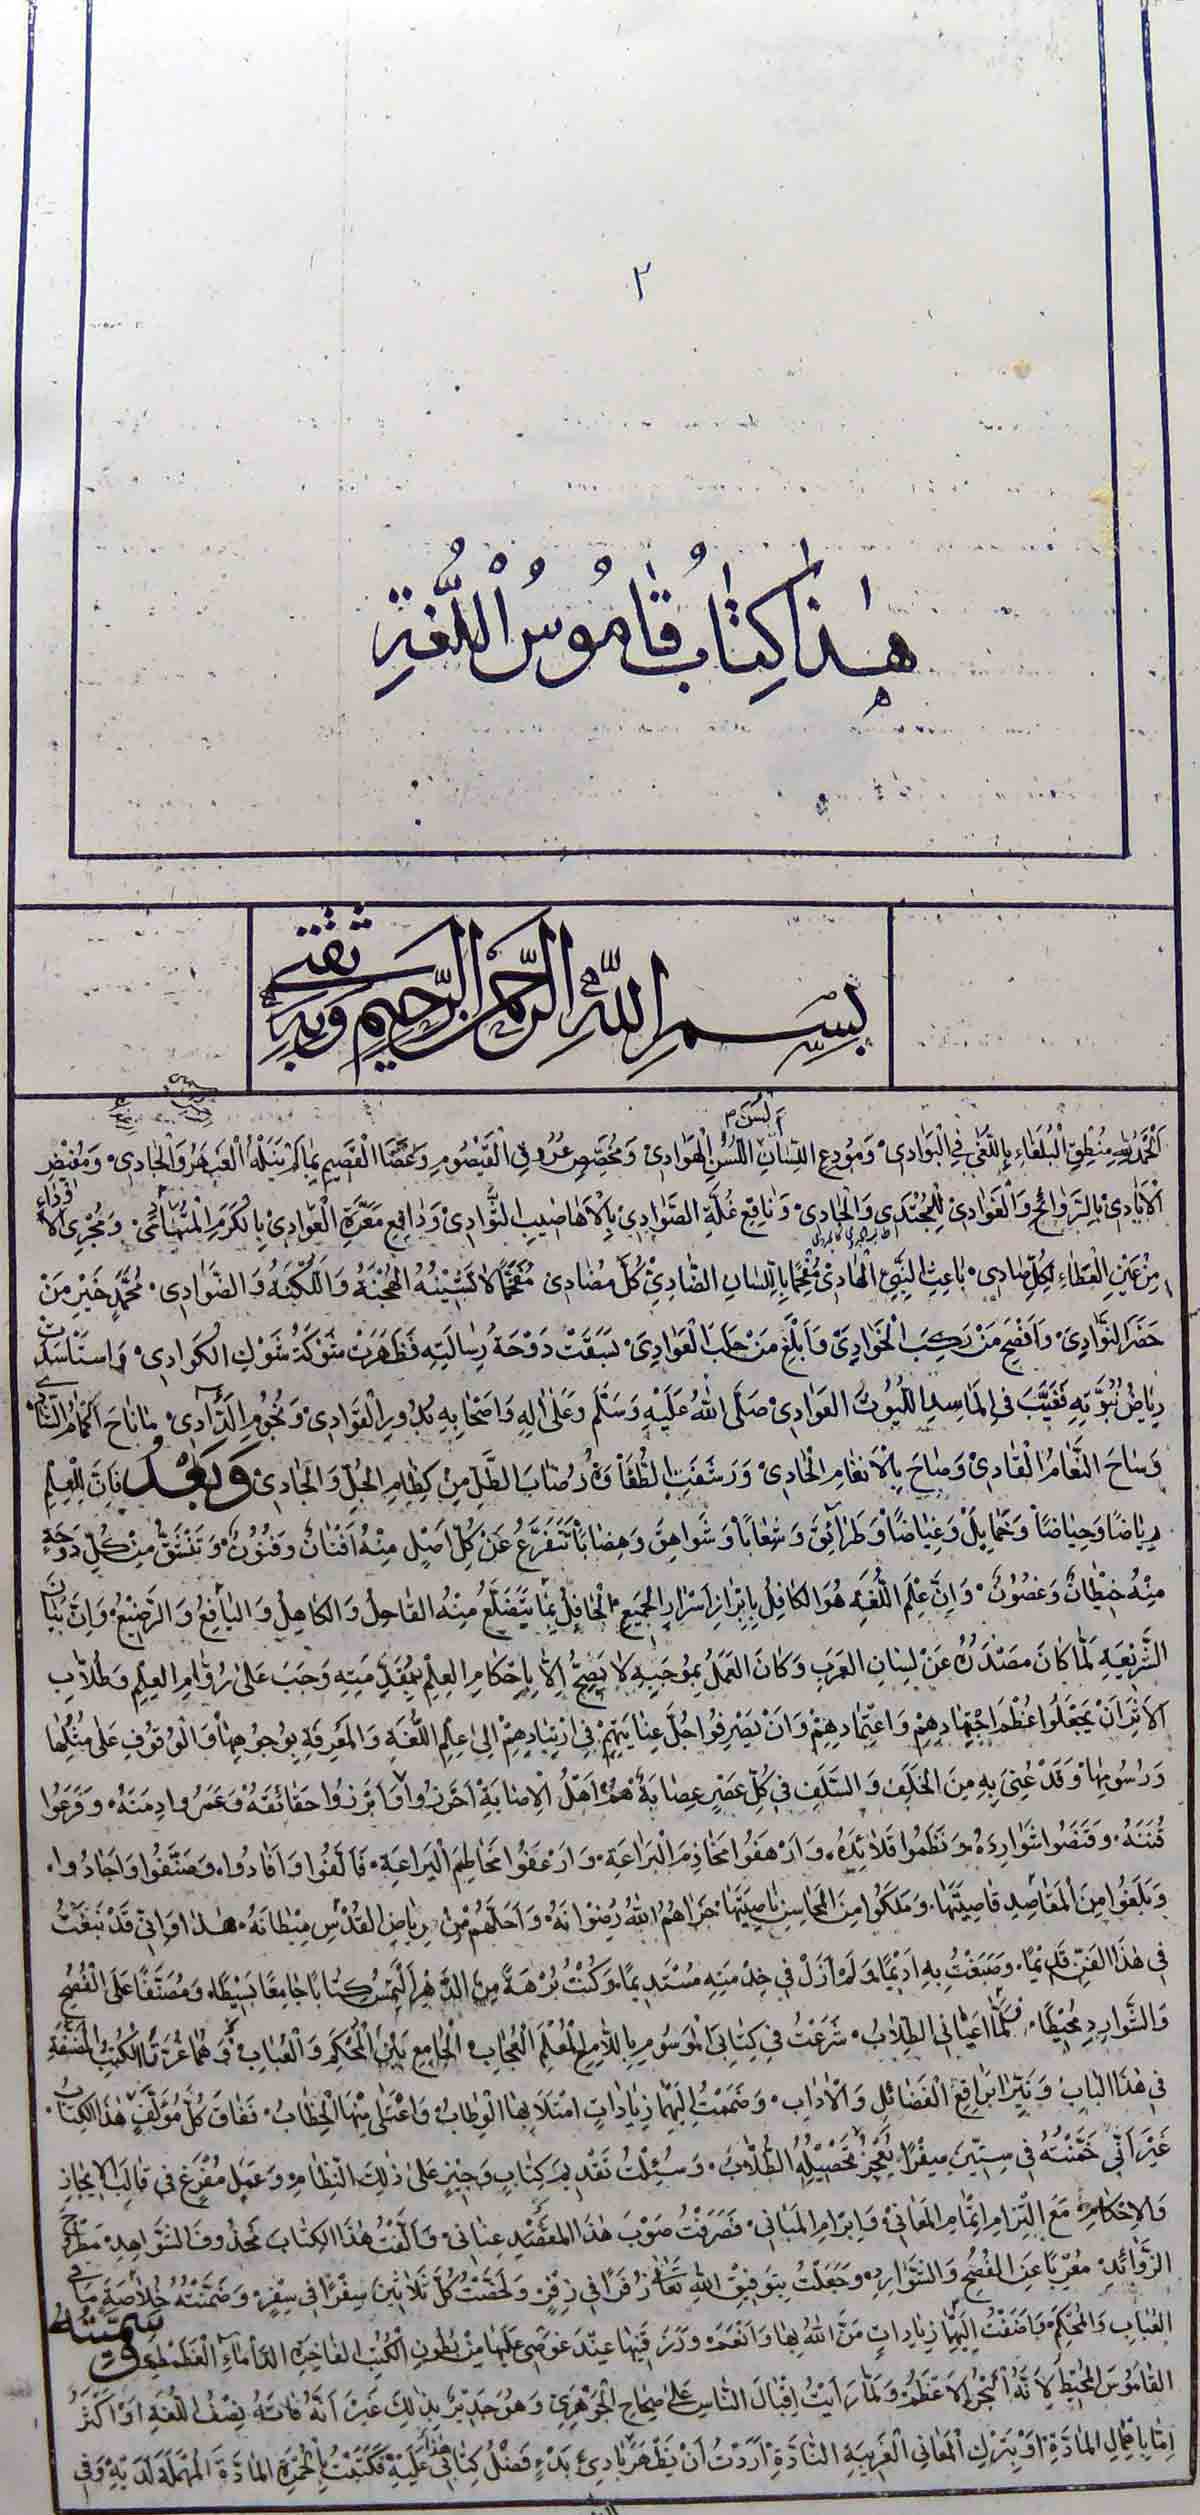 ٢
هٰذا كِتابُ قامُوسُ اللُّغَةِ
بِسْمِ اللهِ الرَّحْمٰنِ الرَّحيمِ وَبِهِ ثِقَتي
اَلْحَمْدُ لِلّٰهِ مُنْطِقِ الْبُلَغاءِ بِاللُّغى فِي الْبَوادي وَمُودِعِ اللِّسانِ اَلْسَنَ اللُّسُنِ الْهَوادي وَمُخَصِّصِ عُرُوقِ الْقَيْصُومِ وَغَضَا الْقَصيمِ بِما لَمْ يَنَلْهُ الْعَبْهَرُ وَالْجادي وَمُفيضِ
الْاَيادي بِالرَّوائِحِ وَالْغَوادي لِلْمُجْتَدي وَالْجادي وَناقِعِ غُلَّةِ الصَّوادي بِالْاَهاضيبِ الثَّوادي وَدافِعِ مَعَرَّةِ الْعَوادي بِالْكَرَمِ الْمُمادي وَمُجْرِي الْاَوْداءِ
مِنْ عَيْنِ الْعَطاءِ لِكُلِّ صادي باعِثِ النَّبِيِّ الْهادي مُفْحِمًا بِاللِّسانِ الضّادي كُلَّ مُضادي مُفَخَّمًا لا تَشينُهُ الْهُجْنَةُ وَاللُّكْنَةُ وَالضَّوادي مُحَمَّدٍ خَيْرِ مَنْ
حَضَرَ النَّوادي وَاَفْصَحِ مَنْ رَكِبَ الْخَوادي وَاَبْلَغِ مَنْ حَلَبَ الْعَوادي بَسَقَتْ دَوْحَةُ رِسالَتِهِ فَظَهَرَتْ شَوْكَةُ شَوْكِ الْكَوادي وَاسْتَأْسَدَتْ
رِياضُ نُبُوَّتِهِ فَعَيَّتْ فِي الْمَآسِدِ اللُّيُوثُ الْعَوادي صَلَّى اللهُ عَلَيْهِ وَسَلَّمَ وَعَلى اٰلِهِ وَاَصْحابِهِ بُدُورِ الْقَوادي وَنُجُومِ الدَّآدي ما ناحَ الْحَمامُ الشّادي
وَساحَ النَّعامُ الْقادي وَصاحَ بِالْاَنْغامِ الْحادي وَرَشَفَتِ الطُّفاوَةُ رُضابَ الطَّلِّ مِنْ كِظامِ الْجُلِّ وَالْجادي وَبَعْدُ فَاِنَّ لِلْعِلْمِ
رِياضًا وَحِياضًا وَخَمائِلَ وَغِياضًا وَطَرائِقَ وَشِعابًا وَشَواهِقَ وَهِضابًا يَتَفَرَّعُ عَنْ كُلِّ اَصْلٍ مِنْهُ اَفْنانٌ وَفُنُونٌ وَتَنْشَقُّ مِنْ كُلِّ دَوْحَةٍ
مِنْهُ خيطانٌ وَغُصُونٌ وَاِنَّ عِلْمَ اللُّغَةِ هُوَ الْكافِلُ بِاِبْرازِ اَسْرارِ الْجَميعِ الْحافِلُ بِما يَتَضَلَّعُ مِنْهُ الْقاحِلُ وَالْكاهِلُ وَالْيافِعُ وَالرَّضيعُ وَاِنَّ بَيانَ
الشَّريعَةِ لَمّا كانَ مَصْدَرُهُ عَنْ لِسانِ الْعَرَبِ وَكانَ الْعَمَلُ بِمُوجَبِهِ لا يَصِحُّ اِلّا بِاِحْكامِ الْعِلْمِ بِمُقَدِّمَتِهِ وَجَبَ عَلى رُوّامِ الْعِلْمِ وَطُلّابِ
الْاَثَرِ اَنْ يَجْعَلُوا عُظْمَ اجْتِهادِهِمْ وَاعْتِمادِهِمْ وَاَنْ يَصْرِفُوا جُلَّ عِنايَتِهِمْ فِي ارْتِيادِهِمْ اِلى عِلْمِ اللُّغَةِ وَالْمَعْرِفَةِ بِوُجُوهِها وَالْوُقُوفِ عَلى مُثُلِها
وَرُسُومِها وَقَدْ عُنِيَ بِهِ مِنَ الْخَلَفِ وَالسَّلَفِ في كُلِّ عَصْرٍ عِصابَةٌ هُمْ اَهْلُ الْاِصابَةِ اَحْرَزُوا وَاَبْرَزُوا حَقائِقَهُ وَعَمَرُوا دِمَنَهُ وَفَرَعُوا
قُنَنَهُ وَقَنَصُوا شَوارِدَهُ وَنَظَمُوا قَلائِدَهُ وَاَرْهَفُوا مَخاذِمَ الْبَراعَةِ وَاَرْعَفُوا مَخاطِمَ الْيَراعَةِ فَاَلَّفُوا وَاَفادُوا وَصَنَّفُوا وَاَجادُوا
وَبَلَغُوا مِنَ الْمَقاصِدِ قاصِيَتَها وَمَلَكُوا مِنَ الْمَحاسِنِ ناصِيَتَها جَزاهُمُ اللهُ رِضْوانَهُ وَاَحَلَّهُمْ مِنْ رِياضِ الْقُدْسِ ميطانَهُ هٰذا وَاِنّي قَدْ نَبَغْتُ
في هٰذَا الْفَنِّ قَديمًا وَصَبَغْتُ بِهِ اَديمًا وَلَمْ اَزَلْ في خِدْمَتِهِ مُسْتَديمًا وَكُنْتُ بُرْهَةً مِنَ الدَّهْرِ اَلْتَمِسُ كِتابًا جامِعًا بَسيطًا وَمُصَنَّفًا عَلَى الْفُصَحِ
وَالشَّوارِدِ مُحيطًا فَلَمّا اَعْيانِي الطِّلابُ شَرَعْتُ في كِتابِيَ الْمَوْسُومِ بِاللّامِعِ الْمُعْلَمِ الْعُجابِ الْجامِعِ بَيْنَ الْمُحْكَمِ وَالْعُبابِ وَهُما غُرَّتَا الْكُتُبِ الْمُصَنَّفَةِ
في هٰذَا الْبابِ وَنَيِّرا بَراقِعِ الْفَضائِلِ وَالْاٰدابِ وَضَمَمْتُ اِلَيْهِما زِياداتٍ امْتَلَأَ بِهَا الْوِطابُ وَاعْتَلى مِنْهَا الْخِطابُ فَفاقَ كُلَّ مُؤَلَّفٍ هٰذَا الْكِتابُ
غَيْرَ اَنّي خَمَّنْتُهُ في سِتّينَ سِفْرًا يُعْجِزُ تَحْصيلُهُ الطُّلّابَ وَسُئِلْتُ تَقْديمَ كِتابٍ وَجيزٍ عَلى ذٰلِكَ النِّظامِ وَعَمَلٍ مُفْرَغٍ في قالَبِ الْايجازِ
وَالْاِحْكامِ مَعَ الْتِزامِ اِتْمامِ الْمَعاني وَاِبْرامِ الْمَباني فَصَرَفْتُ صَوْبَ هٰذَا الْمَقْصَدِ عِناني وَاَلَّفْتُ هٰذَا الْكِتابَ مَحْذُوفَ الشَّواهِدِ مَطْرُوحَ
الزَّوائِدِ مُعْرِبًا عَنِ الْفُصَحِ وَالشَّوارِدِ وَجَعَلْتُ بِتَوْفيقِ اللهِ تَعالى زُفَرًا في زِفْرٍ وَلَخَّصْتُ كُلَّ ثَلاثينَ سِفْرًا في سِفْرٍ وَضَمَّنْتُهُ خُلاصَةَ ما في
الْعُبابِ وَالْمُحْكَمِ وَاَضَفْتُ اِلَيْهِما زِياداتٍ مَنَّ اللهُ بِها وَاَنْعَمَ وَرَزَقَنيها عِنْدَ غَوْصي عَلَيْها مِنْ بُطُونِ الْكُتُبِ الْفاخِرَةِ الدَّأْماءِ الْغَطَمْطَمِ وَسَمَّيْتُهُ
الْقامُوسَ الْمُحيطَ لِاَنَّهُ الْبَحْرُ الْاَعْظَمُ وَلَمّا رَاَيْتُ اِقْبالَ النّاسِ عَلى صِحاحِ الْجَوْهَرِيِّ وَهُوَ جَديرٌ بِذٰلِكَ غَيْرَ اَنَّهُ فاتَهُ نِصْفُ اللُّغَةِ اَوْ اَكْثَرُ
اِمّا بِاِهْمالِ الْمادَّةِ اَوْ بِتَرْكِ الْمَعانِي الْغَريبَةِ النّادَّةِ اَرَدْتُ اَنْ يَظْهَرَ بادِئَ بَدْءٍ فَضْلُ كِتابي هٰذا عَلَيْهِ فَكَتَبْتُ بِالْحُمْرَةِ الْمادَّةَ الْمُهْمَلَةَ لَدَيْهِ وَفي